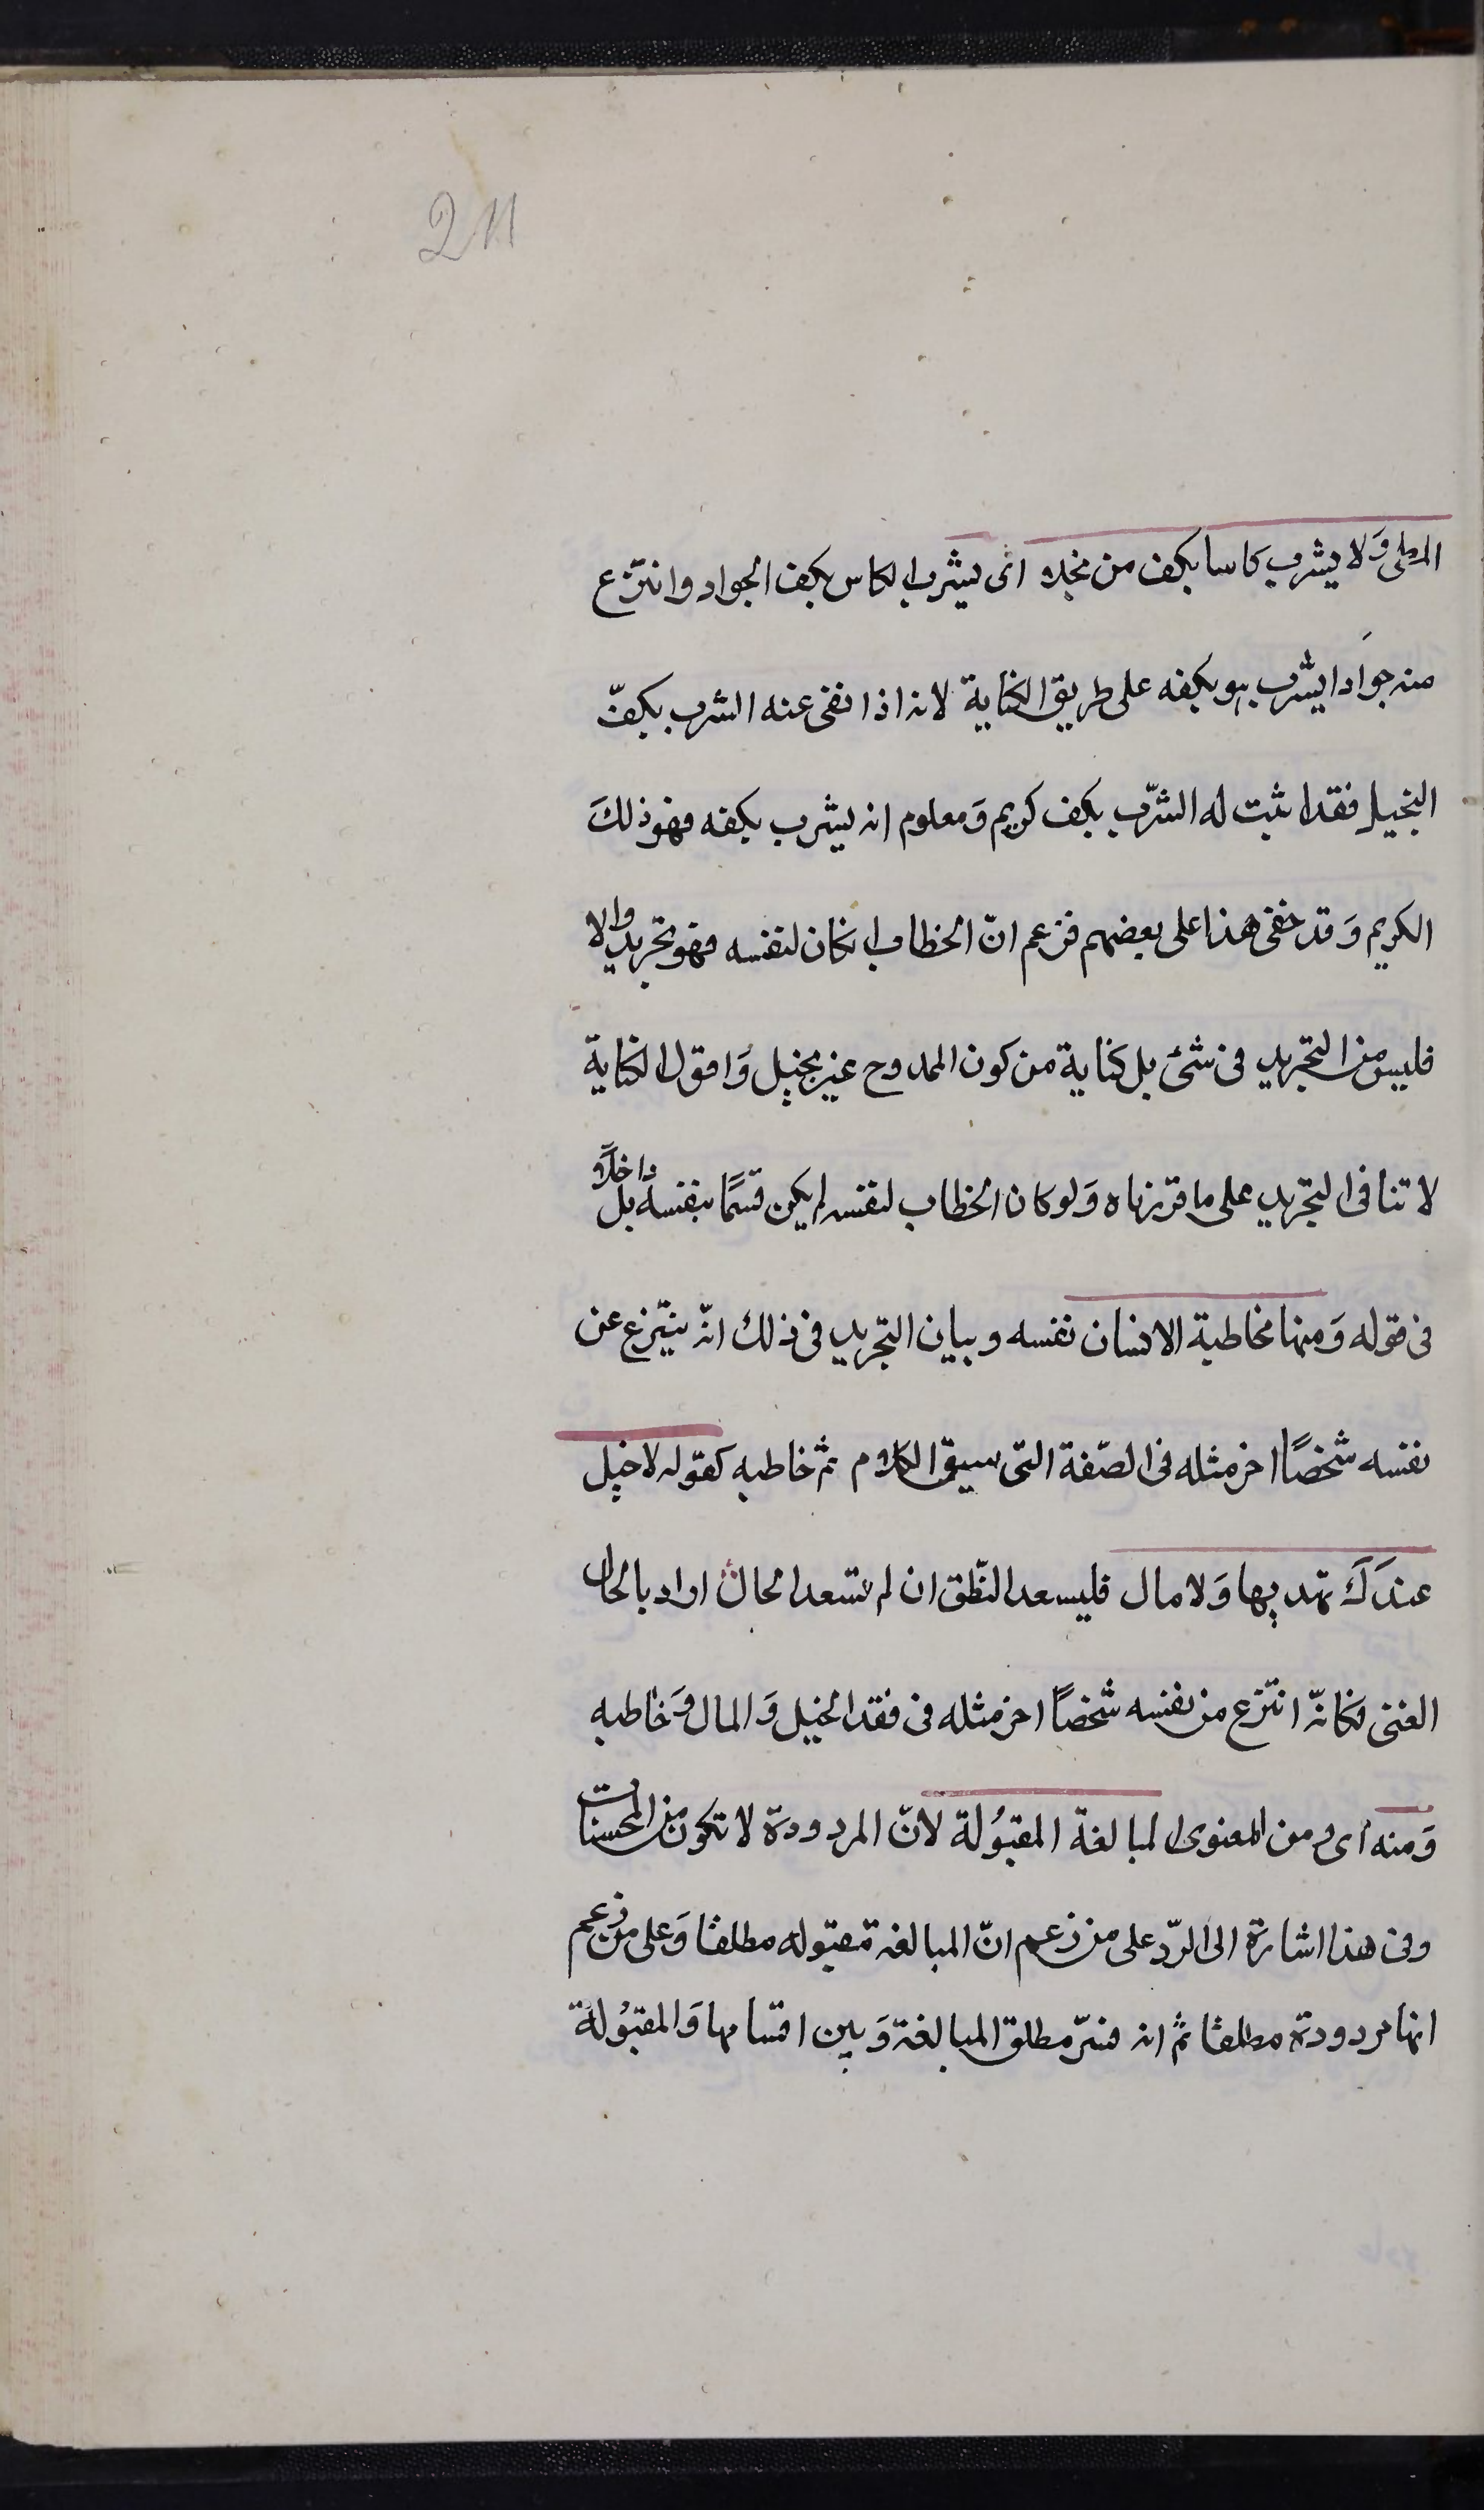 211
المطى وَلا يشرب كاسا بكف من بخلا اى يشرب الكاس بكف الجواد وانتزع
منه جوادا يشرب هو بكفه على طريق الكناية لانه اذا نفى عنه الشرب بكفّ
البخيل فقد اثبت له الشرّب بكف كريم وَمعلوم انه يشرب بكفه فهو ذلكَ
الكريم وَقد خفى هذا على بعضهم فزعم انّ الخطاب ان كان لنفسه فهو تجريد والا
فليس من التجريد فى شئ بل كناية من كون الممدوح غير بخيل وَاقول الكناية
لا تنافى التجريد على ما قررناه وَلو كان الخطاب لنفسه لم يكن قسمًا بنفسه بل داخلًا
فى قوله وَمنها مخاطبة الانسان نفسه وبيان التجريد فى ذلك انّه ينتزع عن
نفسه شخصًا اخر مثله فى الصّفة التى سيق الكلام ثم خاطبه كقوله لا خيل
عندَكَ تهديها وَلا مال فليسعد النّطق ان لم تسعد الحال اراد بالحال
الغنى فكانّه انتزع من نفسه شخصًا اخر مثله فى فقد الخيل وَالمال وَخاطبه
وَمنه اى ومن المعنوى المبالغة المقبُولة لانّ المردودة لا تكون من المحسنات
وفى هذا اشارة الى الرّد على من زعم انّ المبالغة مقبوله مطلقا وَعلى من زعم
انها مردودة مطلقا ثمّ انه فسّر مطلق المبالغة وَبين اقسامها وَالمقبُولة